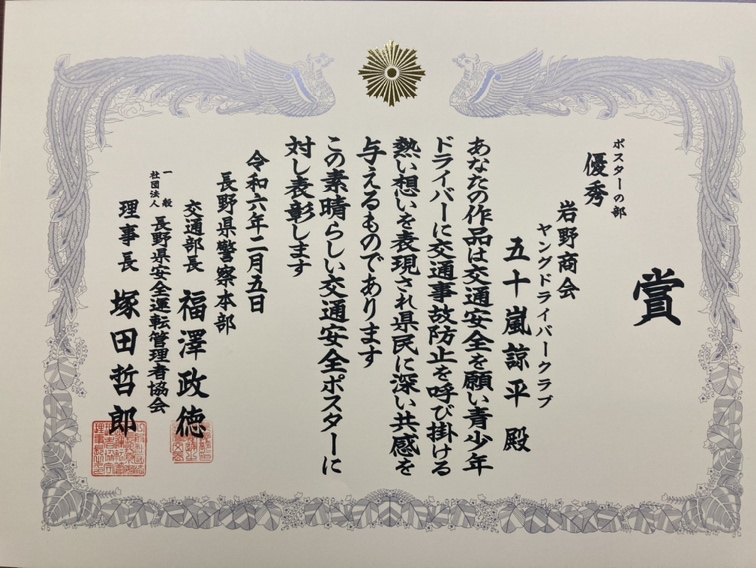 賞
ポスターの部
優秀
岩野商会
ヤングドライバークラブ
五十嵐諒平 殿
あなたの作品は交通安全を願い青少年
ドライバーに交通事故防止を呼び掛ける
熱い想いを表現され県民に深い共感を
与えるものであります
この素晴らしい交通安全ポスターに
対し表彰します
令和六年二月五日
長野県警察本部
交通部長 福澤政徳
一般社団法人 長野県安全運転管理者協会
理事長 塚田哲郎